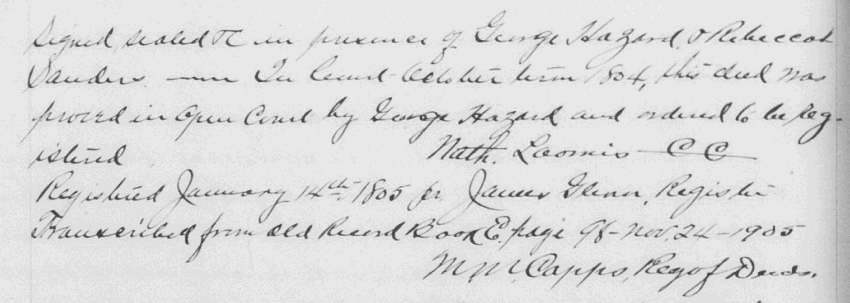 Signed, sealed &c in presence of George Hazard & Rebeccah
Sanders — In Court October term 1804, this deed was
proved in open Court by George Hazard and ordered to be Reg-
istered Nath. Loomis C C
Registered January 14th 1805 pr James Glenn, Register
Transcribed from old Record Book E. page 98 - Nov. 24 - 1905
M. M. Capps, Reg of Deeds.